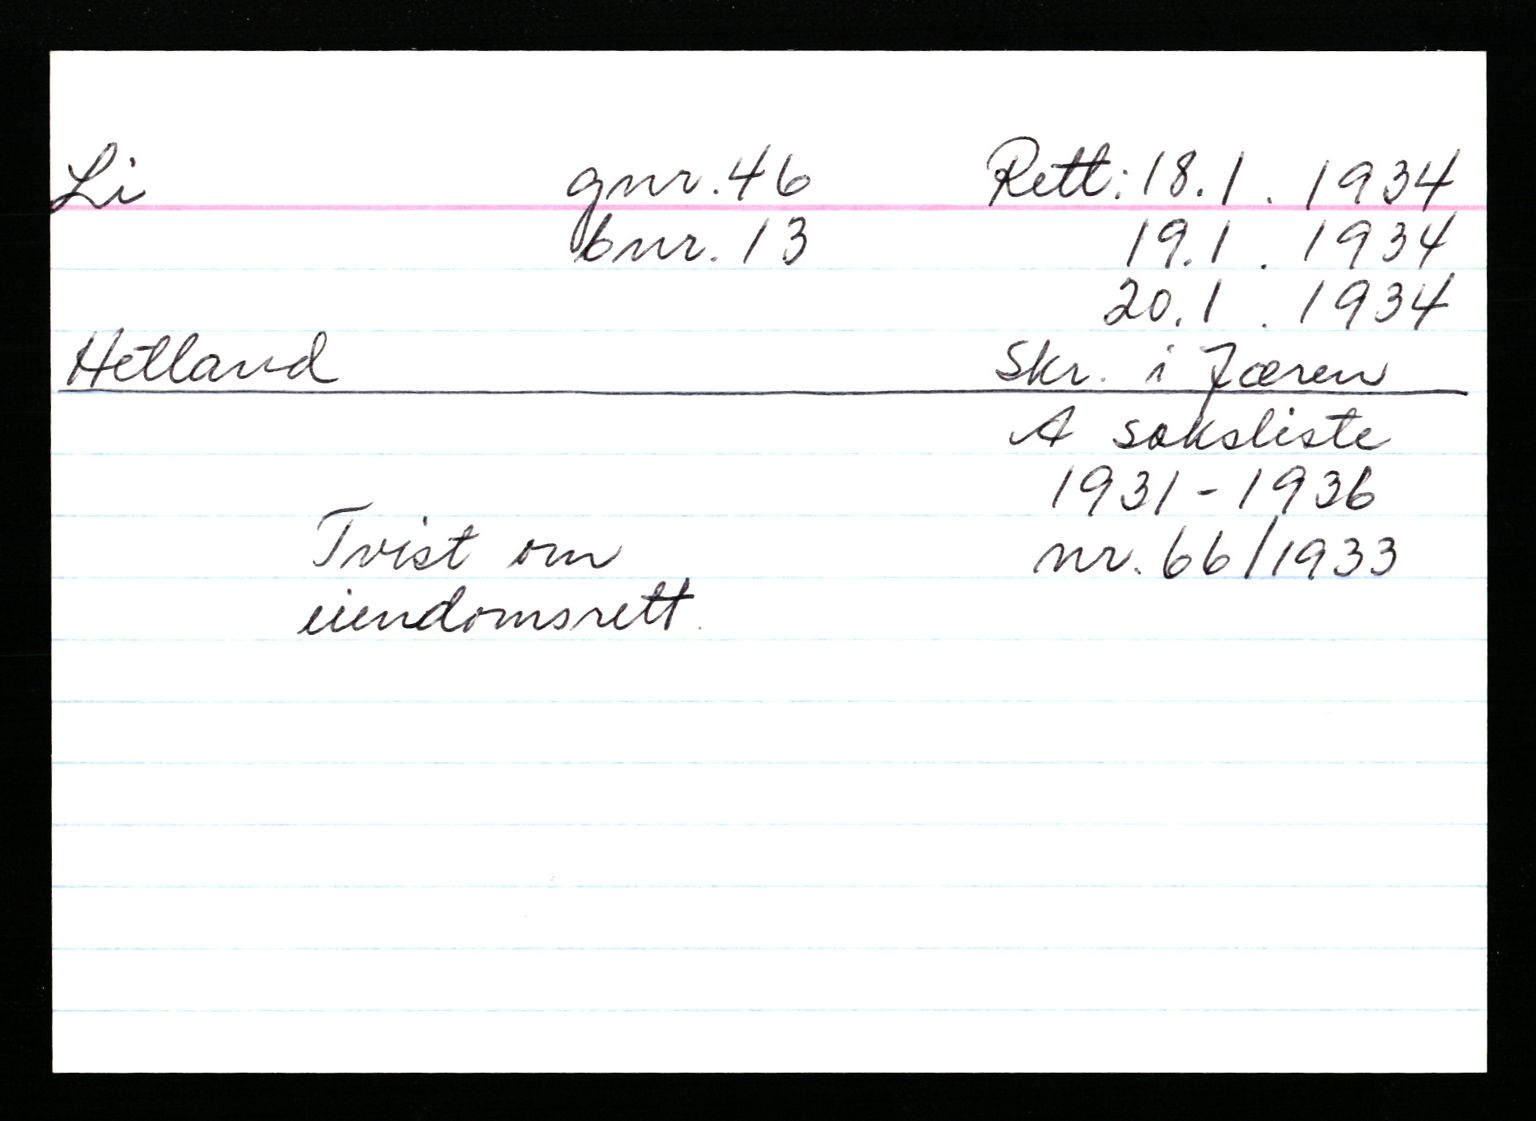 Li gnr. 46 Rett: 18.1. 1934
bnr. 13 19.1. 1934
20.1. 1934
Hetland Skr. i Jæren
A saksliste
1931-1936
Tvist om nr. 66/1933
eiendomsrett.